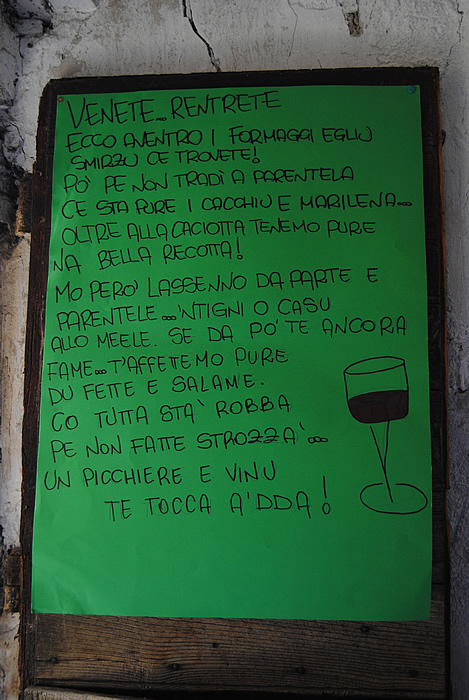 VENETE... RENTRETE
ECCO AVENTRO I FORMAGGI EGLIU
SMIRZU CE TROVETE!
PO' PE NON TRADÌ A PARENTELA
CE STA PURE I CACCHIU E MARILENA...
OLTRE ALLA CACIOTTA TENEMO PURE
NA BELLA RECOTTA!
MO PERO' LASSENNO DA PARTE E
PARENTELE... 'NTIGNI O CASU
ALLO MEELE. SE DA PO' TE ANCORA
FAME... T'AFFETTEMO PURE
DU FETTE E SALAME.
CO TUTTA STA' ROBBA
PE NON FATTE STROZZA'...
UN PICCHIERE E VINU
TE TOCCA A'DDA!